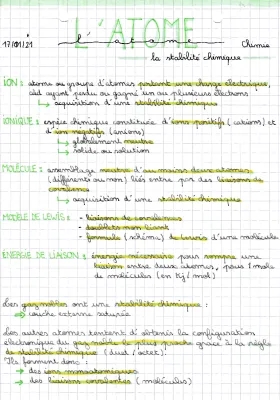 L'ATOME
17/01/21 l'atome Chimie
la stabilité chimique
ION : atome ou groupe d'atomes portant une charge électrique,
càd ayant perdu ou gagné un ou plusieurs électrons
↳ acquisition d'une stabilité chimique
IONIQUE : espèce chimique constituée d'ions positifs (cations) et
d'ion négatifs (anions)
↳ globalement neutre
↳ solide ou solution
MOLÉCULE : assemblage neutre d'au moins deux atomes
(différents ou non) liés entre par des liaisons de
covalence
↳ acquisition d'une stabilité chimique
MODÈLE DE LEWIS : - liaisons de covalence
- doublets non liant
- formule (schéma) de Lewis d'une molécule
ÉNERGIE DE LIAISON : énergie nécessaire pour rompre une
liaison entre deux atomes, pour 1 mole
de molécules (en KJ/mol)
Les gaz nobles ont une stabilité chimique :
→ couche externe saturée
Les autres atomes tentent d'obtenir la configuration
électronique du gaz noble le plus proche grâce à la règle
de stabilité chimique (duet / octet).
Ils forment donc :
→ des ions monoatomiques
→ des liaisons covalentes (molécules)